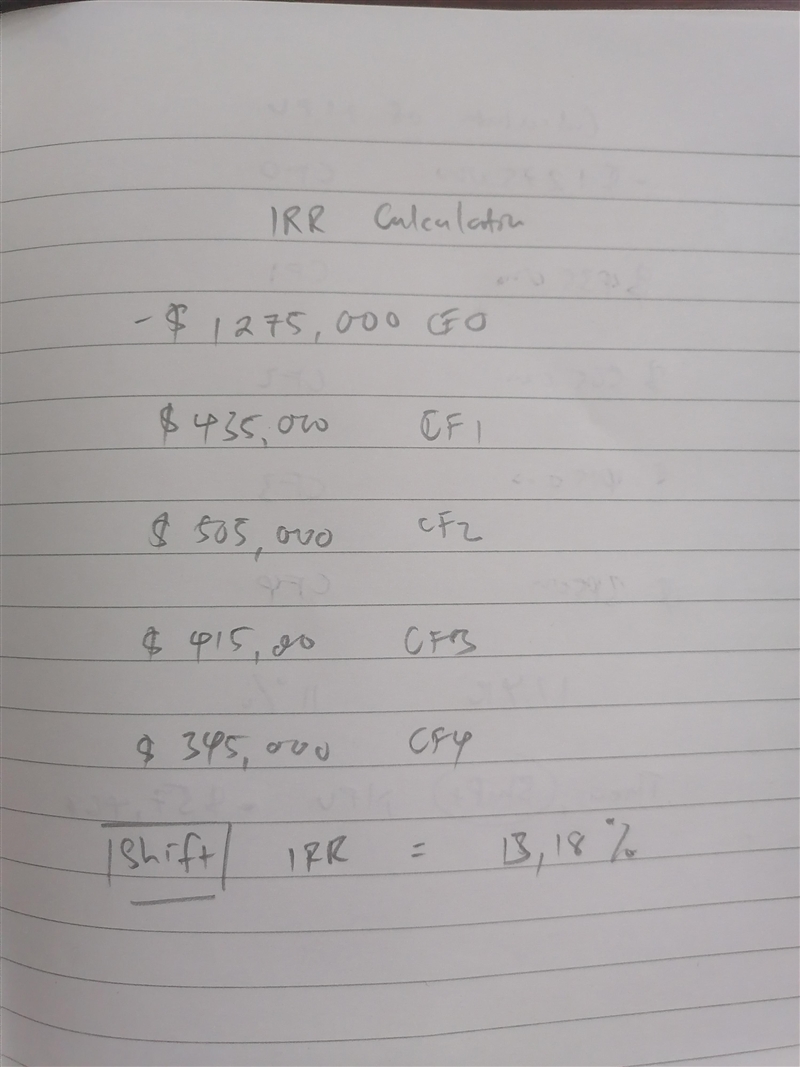 IRR Calculation
- $ 1275,000 CF0
$ 435,000 CF1
$ 505,000 CF2
$ 415,00 CF3
$ 345,000 CF4
Shift IRR = 13,18%